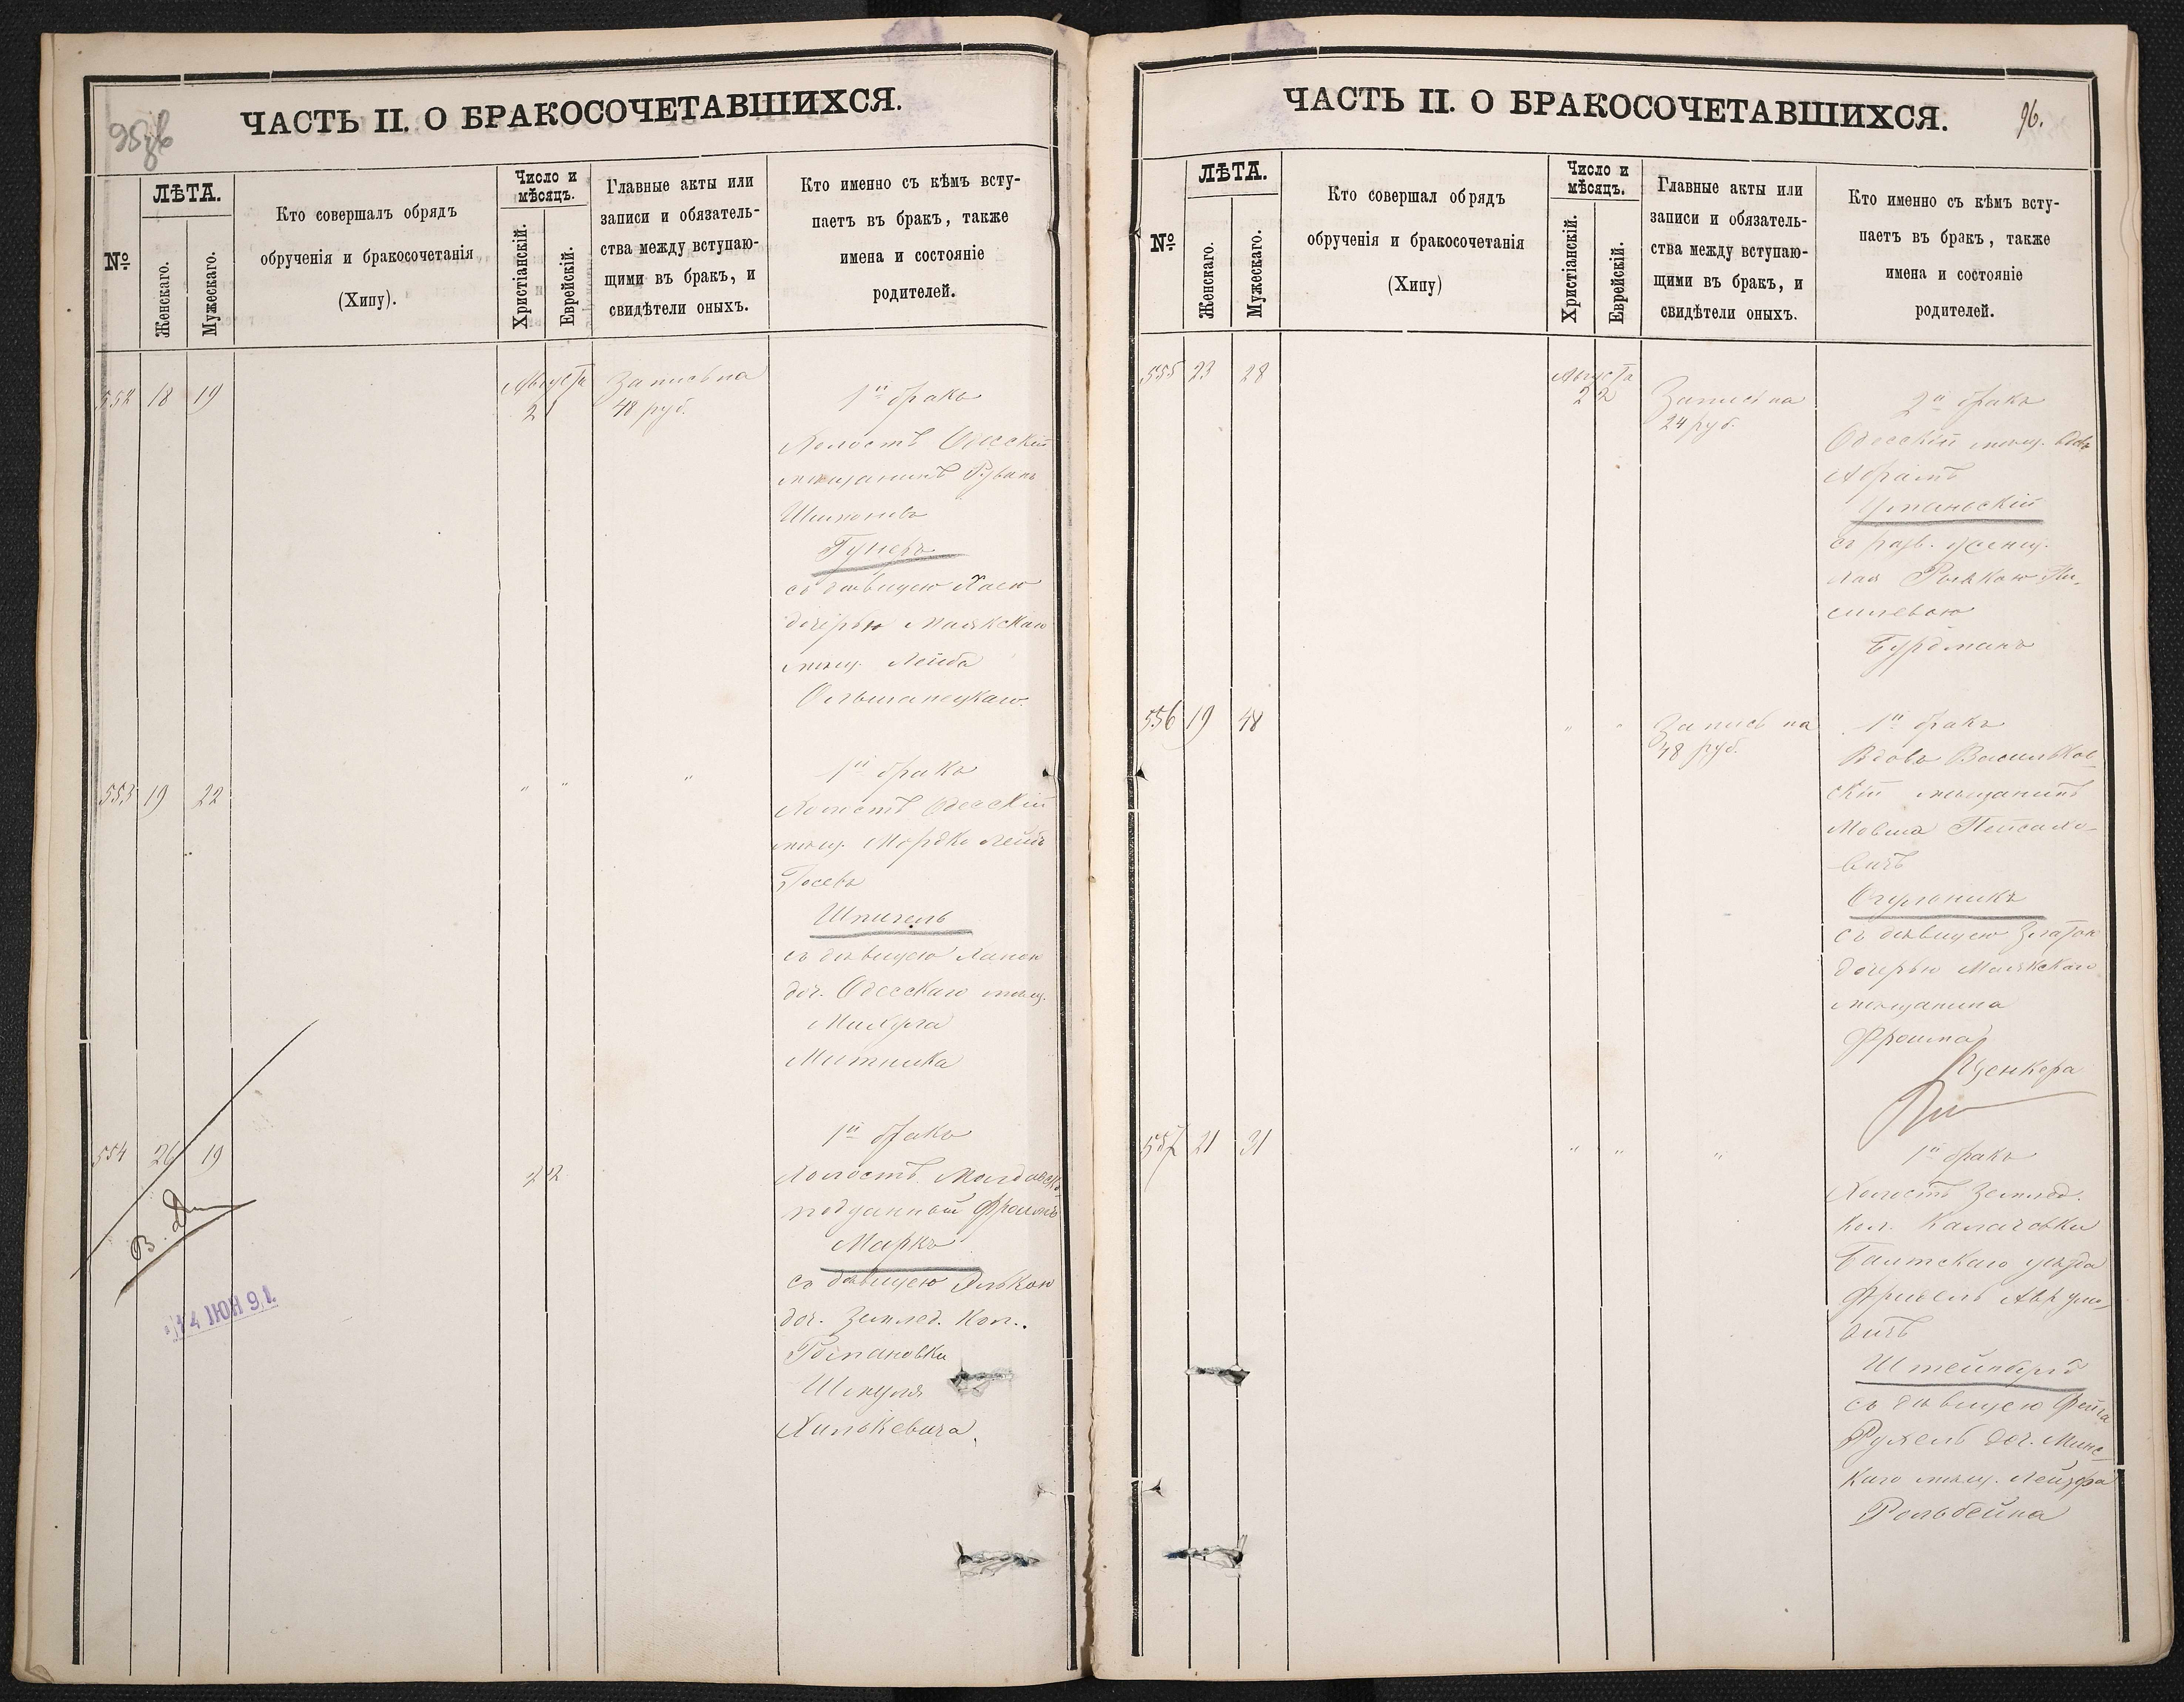 95об
ЧАСТЬ II. О БРАКОСОЧЕТАВШИХСЯ.
№
ЛѢТА.
Женскаго.
Мужескаго.
Кто совершалъ обрядъ
обрученія и бракосочетанія
(Хипу).
Число и
мѣсяцъ.
Христіанскій.
Еврейскій.
Главные акты или
записи и обязатель-
ства между вступаю-
щими въ бракъ, и
свидѣтели оныхъ.
Кто именно съ кѣмъ всту-
паетъ въ бракъ, также
имена и состояніе
родителей.
552 18 19
Августа
21
Запись на
48 руб.
1й бракъ
Холостъ Одесскій
мѣщанинъ Рувинъ
Шимоновъ
съ дѣвицею Хаею
дочерью Маякскаго
мѣщ. Лейба
Ольшанецкаго.
553 19 22
" " "
1й бракъ
Холостъ Одесскій
мѣщ. Мордко Лейбъ
Іосевъ
Шпигель
съ дѣвицею Ханею
доч. Одесскаго мѣщ.
Митника
554 26 19
22
1й бракъ
Холостъ Молдавск.
подданный Фроимъ
Маркъ
съ дѣвицею Элькою
доч. Землед. Кол.
Романовки
Шмуля
Хилькевича.
14 ІЮН 91.
ЧАСТЬ II. О БРАКОСОЧЕТАВШИХСЯ.
96.
№
ЛѢТА.
Женскаго.
Мужескаго.
Кто совершал обрядъ
обрученія и бракосочетанія
(Хипу)
Число и
мѣсяцъ.
Христіанскій.
Еврейскій.
Главные акты или
записи и обязатель-
ства между вступаю-
щими въ бракъ, и
свидѣтели оныхъ.
Кто именно съ кѣмъ всту-
паетъ въ бракъ, также
имена и состояніе
родителей.
555 23 28
Августа
22
Запись на
24 руб.
2й бракъ
Одесскій мѣщ.
Абрамъ
Уманскій
съ разв. женщ.
Бурдманъ
556 19 48
" "
Запись на
48 руб.
1й бракъ
Вдовъ Васильков-
скій мѣщанинъ
Мовша Пейсахо-
вичъ
съ дѣвицею Златою
дочерью Маякскаго
мѣщанина
Фроима
Ценкера
557 21 31
" " "
1й бракъ
Холостъ Землед.
кол. Калачовки
Балтскаго уѣзда
Фривель Аврумо-
вичъ
Штейнбергъ
съ дѣвицею Фейга
Рухель доч. Минс-
каго мѣщ. Лейзера
Рольбейна